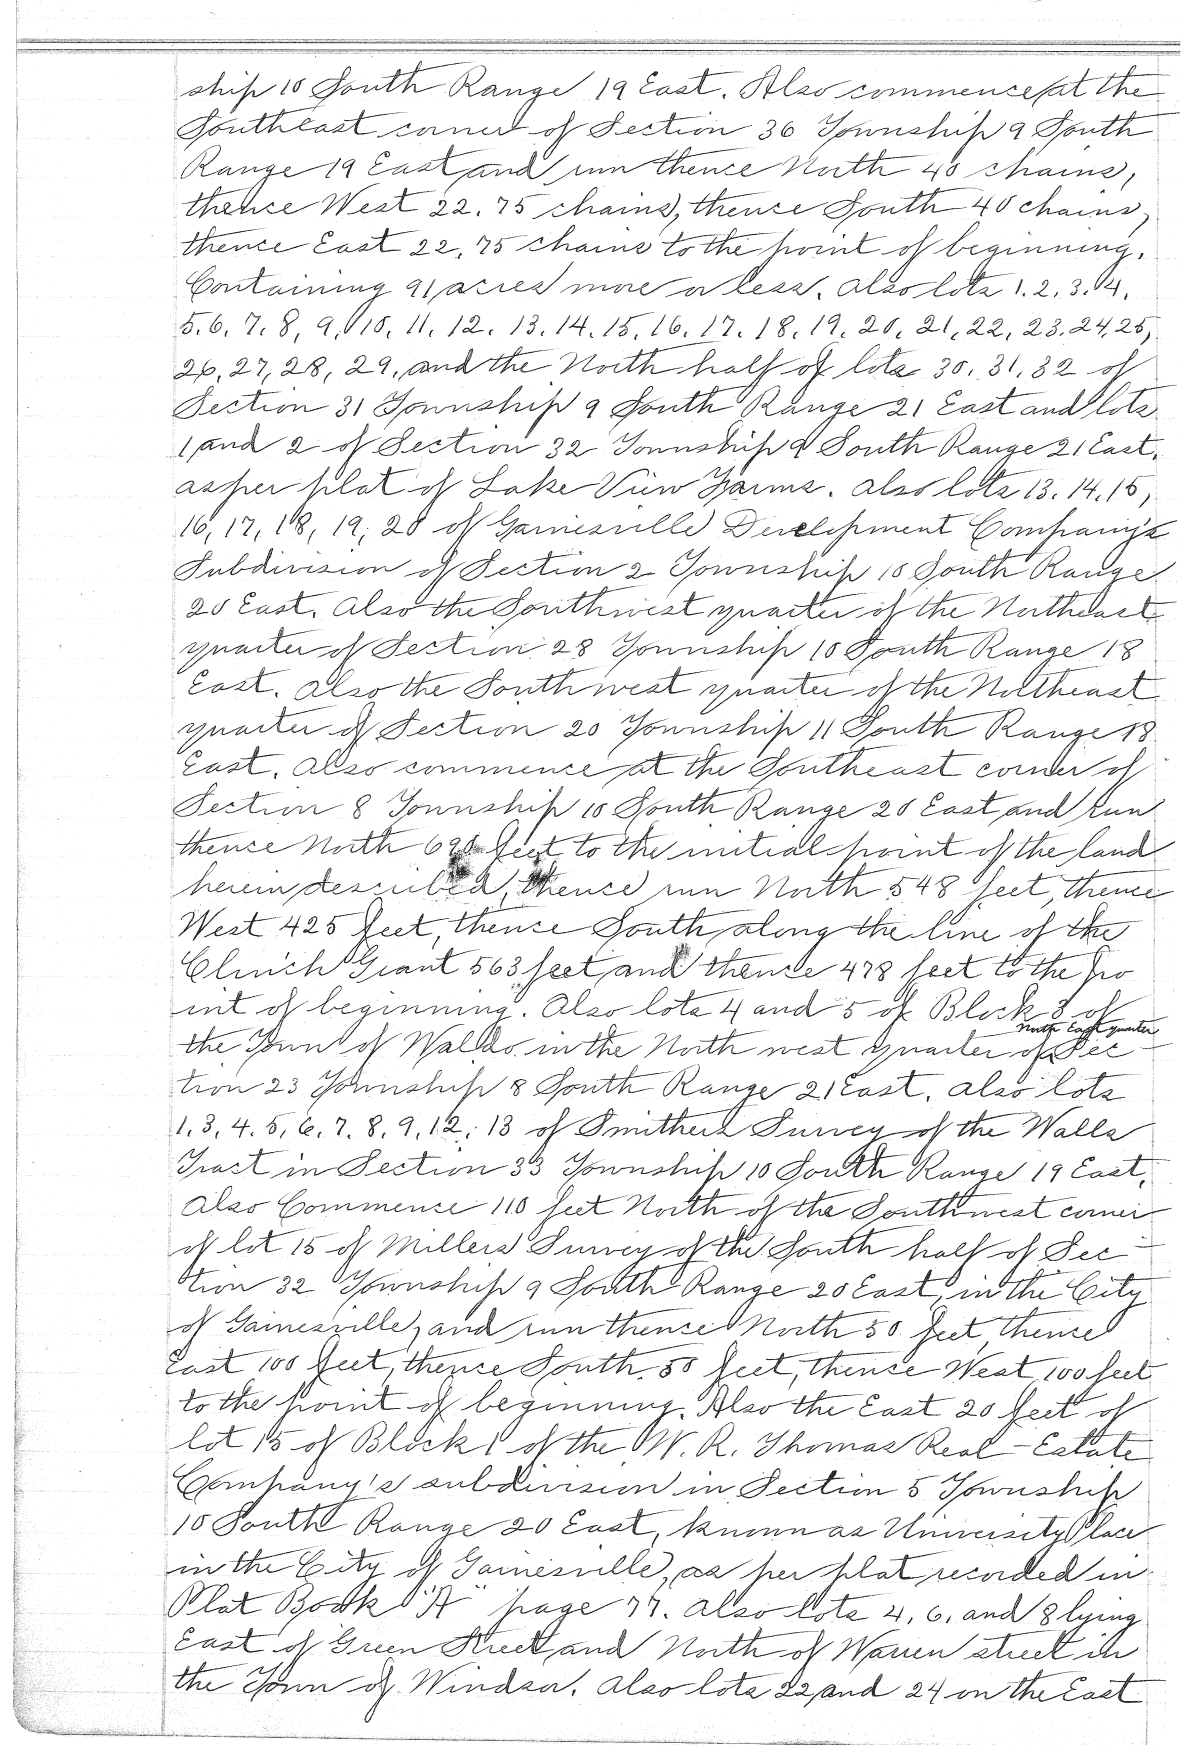 ship 10 South Range 19 East. Also commence at the
Southeast corner of Section 36 Township 9 South
Range 19 East and run thence North 40 chains,
thence West 22.75 chains, thence South 40 chains,
thence East 22.75 chains to the point of beginning.
Containing 91 acres more or less. Also lots 1. 2. 3. 4.
5. 6. 7. 8, 9, 10, 11, 12. 13. 14. 15, 16. 17. 18, 19. 20, 21, 22, 23. 24, 25,
26, 27, 28, 29, and the North half of lots 30. 31. 32 of
Section 31 Township 9 South Range 21 East and lots
1 and 2 of Section 32 Township 9 South Range 21 East.
as per plat of Lake View Farms. Also lots 13. 14. 15,
16, 17, 18, 19, 20 of Gainesville Development Company's
Subdivision of Section 2 Township 10 South Range
20 East. Also the Southwest quarter of the Northeast
quarter of Section 28 Township 10 South Range 18
East. Also the Southwest quarter of the Northeast
quarter of Section 20 Township 11 South Range 18
East. Also commence at the Southeast corner of
Section 8 Township 10 South Range 20 East and run
thence North feet to the initial point of the land
herein described, thence run North 548 feet, thence
West 425 feet, thence South along the line of the
Clinch Grant 563 feet and thence 478 feet to the po
int of beginning. Also lots 4 and 5 of Block 3 of
North East quarter
the Town of Waldo in the North west quarter of Sec-
tion 23 Township 8 South Range 21 East. Also lots
1. 3, 4. 5, 6, 7. 8, 9, 12, 13 of Smithers Survey of the Walls
Tract in Section 33 Township 10 South Range 19 East.
Also Commence 110 feet North of the Southwest corner
of lot 15 of Millers Survey of the South half of Sec-
tion 32 Township 9 South Range 20 East, in the City
of Gainesville, and run thence North 50 feet, thence
East 100 feet, thence South 50 feet, thence West 100 feet
to the point of beginning. Also the East 20 feet of
lot 15 of Block 1 of the W. R. Thomas Real-Estate
Company's subdivision in Section 5 Township
10 South Range 20 East, known as University Place
in the City of Gainesville, as per plat recorded in
Plat Book "A" page 77. Also lots 4, 6, and 8 lying
East of Green Street and North of Warren street in
the Town of Windsor. Also lots 22 and 24 on the East